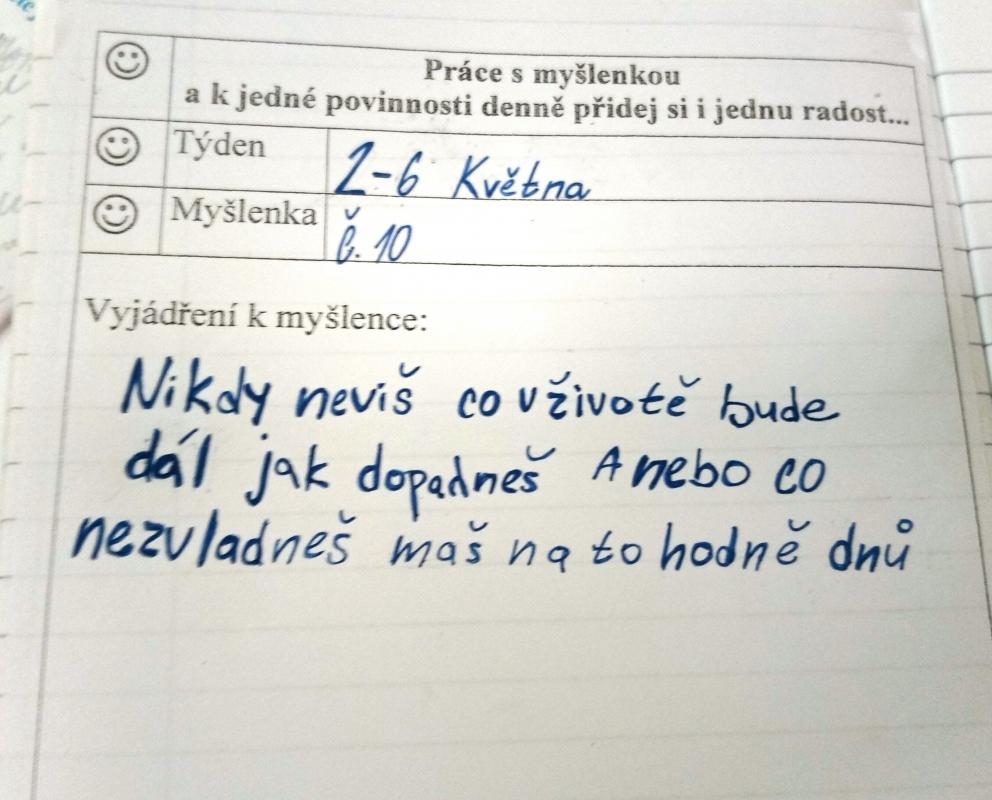 Práce s myšlenkou
a k jedné povinnosti denně přidej si i jednu radost...
Týden 2-6 Května
Myšlenka č. 10
Vyjádření k myšlence:
Nikdy neviš co v životě bude
dál jak dopadneš Anebo co
nezvladneš maš na to hodně dnů